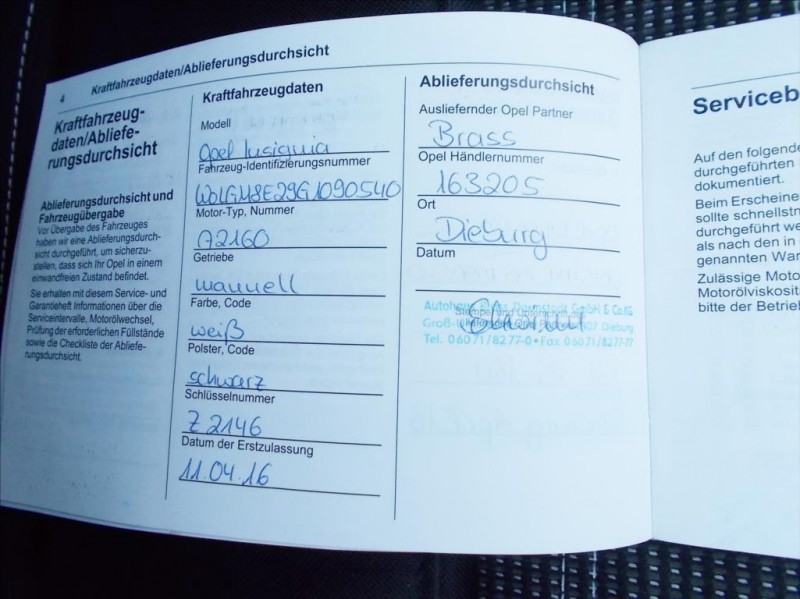 4 Kraftfahrzeugdaten/Ablieferungsdurchsicht
Kraftfahrzeug-
daten/Abliefe-
rungsdurchsicht
Ablieferungsdurchsicht und
Fahrzeugübergabe
Vor Übergabe des Fahrzeuges
haben wir eine Ablieferungsdurch-
sicht durchgeführt, um sicherzu-
stellen, dass sich Ihr Opel in einem
einwandfreien Zustand befindet.
Sie erhalten mit diesem Service- und
Garantieheft Informationen über die
Serviceintervalle, Motorölwechsel,
Prüfung der erforderlichen Füllstände
sowie die Checkliste der Abliefe-
rungsdurchsicht.
Kraftfahrzeugdaten
Modell
Opel Insignia
Fahrzeug-Identifizierungsnummer
W0LGM8E29G1090540
Motor-Typ, Nummer
A2160
Getriebe
manuell
Farbe, Code
weiß
Polster, Code
schwarz
Schlüsselnummer
Z2146
Datum der Erstzulassung
11.04.16
Ablieferungsdurchsicht
Ausliefernder Opel Partner
Brass
Opel Händlernummer
163205
Ort
Dieburg
Datum
Autohaus Brass Darmstadt GmbH & Co.KG
Stempel und Unterschrift
Dieburg
Tel. 06071/8277-0 • Fax 06071/8277-77
Serviceb
Auf den folgende
durchgeführten
dokumentiert.
Beim Erscheine
sollte schnellstm
durchgeführt we
als nach den in
genannten War
Zulässige Moto
Motorölviskosit
bitte der Betrie